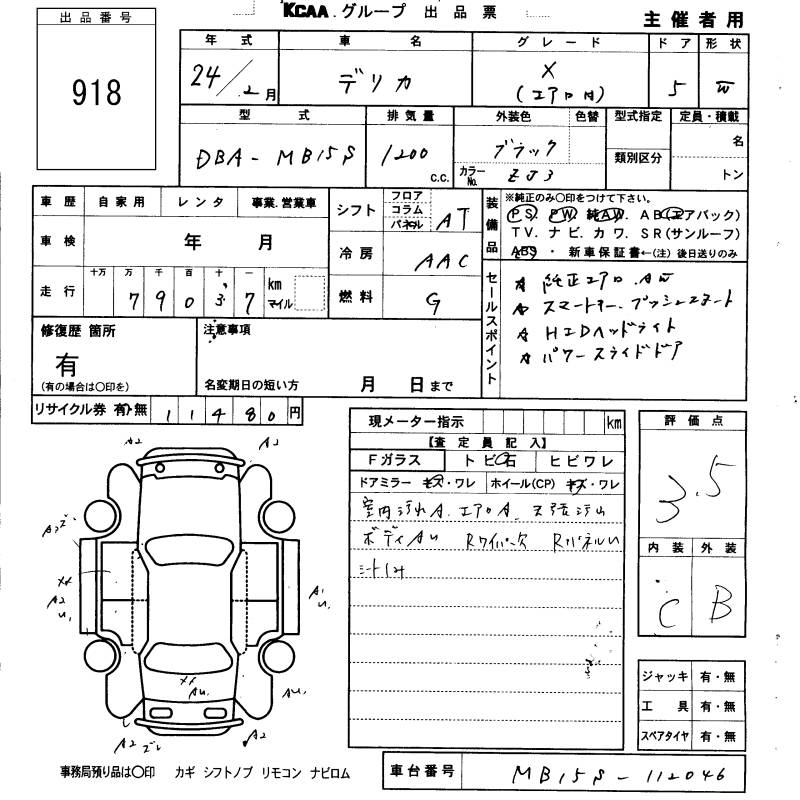 KCAA.グループ 出品票
主催者用
出品番号
918
年式 車名 グレード ドア 形状
24/2月 デリカ X(エアロ付) 5
型式 排気量 外装色 色替 型式指定 定員・積載
DBA-MB15S 1200 c.c. ブラック 名
カラーNo. ZJ3 類別区分 トン
車歴 自家用 レンタ 事業.営業車
車検 年 月
走行 十万 万 千 百 十 一
79037 km マイル
シフト フロア コラム パネル AT
冷房 AAC
燃料 G
装備品
※純正のみ○印をつけて下さい。
PS. PW. 純AW. AB(エアバック)
TV.ナビ.カワ.SR(サンルーフ)
ABS・ 新車保証書←(注)後日送りのみ
セールスポイント
純正エアロ.AW
スマートキー.プッシュスタート
HIDヘッドライト
パワースライドドア
修復歴 箇所
有
(有の場合は○印を)
注意事項
名変期日の短い方 月 日まで
リサイクル券 有・無 11480円
現メーター指示 km
【査定員記入】
Fガラス トビ石 ヒビワレ
ドアミラー キズ・ワレ ホイール(CP) キズ・ワレ
室内汚れA.エアロA.
ボディAU Rワイパー欠 RパネルU
シート
評価点
3.5
内装 外装
C B
A2 A2
A2
XX
A2
U1
A1
U1
XX
AU1
AU1
A2 A2
ジャッキ 有・無
工具 有・無
スペアタイヤ 有・無
事務局預り品は○印 カギ シフトノブ リモコン ナビロム
車台番号 MB15S-112046